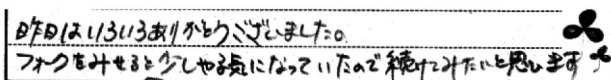 昨日はいろいろありがとうございました。
フォークをみせると少しやる気になっていたので続けてみたいと思います